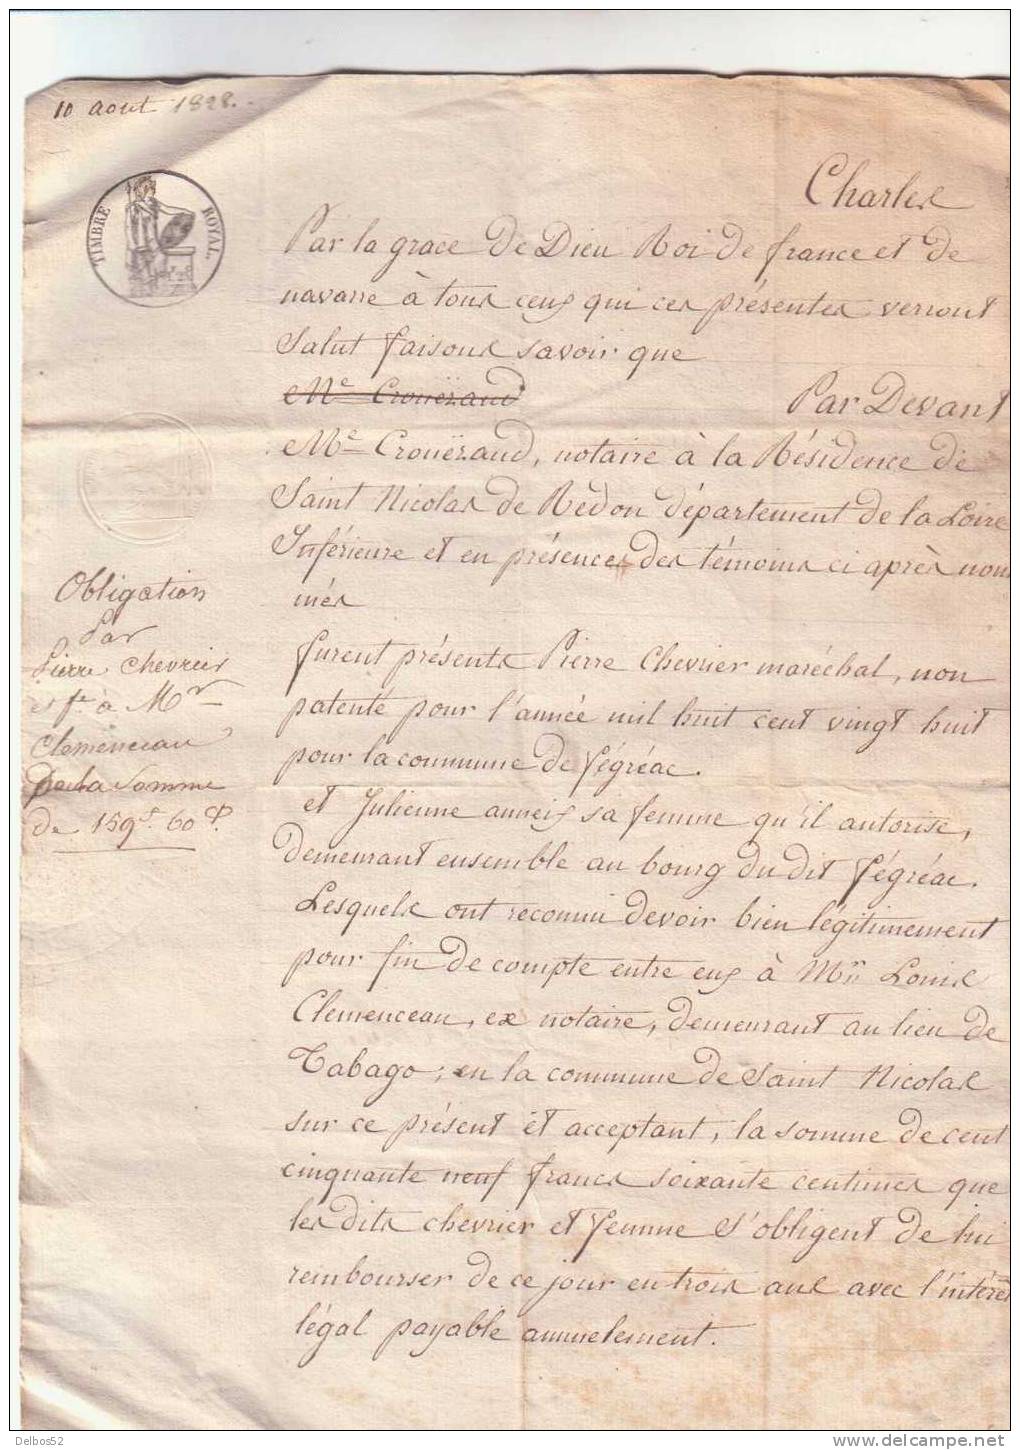 10 aout 1828.
TIMBRE ROYAL.
Charles
Par la grace de Dieu Roi de france et de
navarre à tous ceux qui ces présentes verront
Salut faisons savoir que
Me Crouëzaud
Par Devant
Me Crouëzaud, notaire à la Résidence de
Saint Nicolas de Redon département de la Loire
Inférieure et en présences des témoins ci après nom
més
furent présents Pierre Chevrier maréchal, non
patenté pour l'année mil huit cent vingt huit
pour la commune de fégréac.
et Julienne anneix sa femme qu'il autorise,
demeurant ensemble au bourg du dit fégréac.
Lesquels ont reconnu devoir bien légitimement
pour fin de compte entre eux à Mr Louis
Clemenceau, ex notaire, demeurant au lieu de
Tabago; en la commune de Saint Nicolas
sur ce présent et acceptant, la somme de cent
cinquante neuf francs soixante centimes que
les dits chevrier et femme s'obligent de lui
rembourser de ce jour en trois ans avec l'intérêt
légal payable annuelement.
Obligation
Par
Pierre Chevreir
et fe à Mr
Clemenceau
De la Somme
de 159f. 60 c.
Delbos52
www.delcampe.net